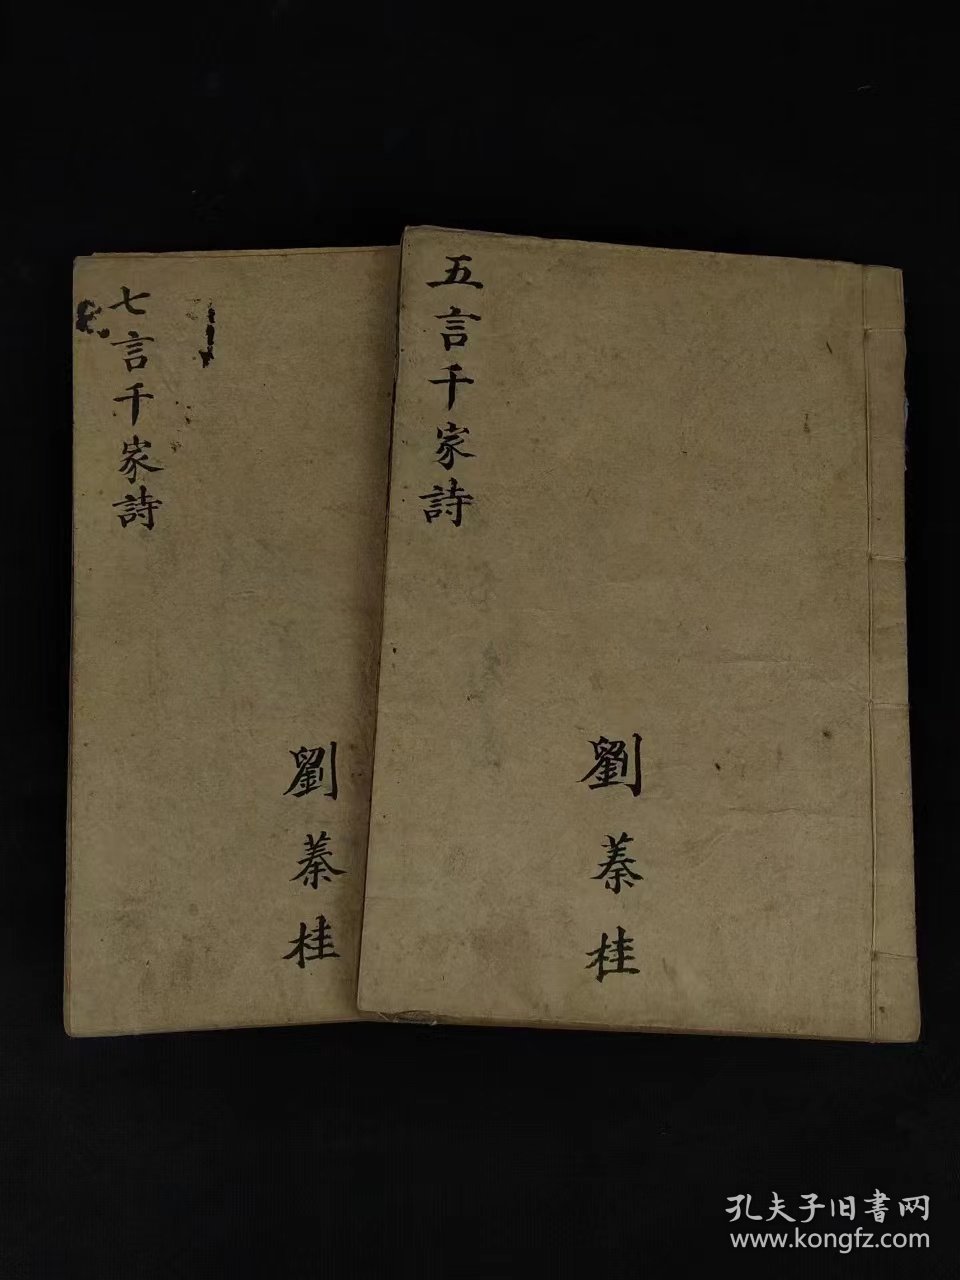 五言千家詩
劉蓁桂
七言千家詩
劉蓁桂
孔夫子旧書网
www.kongfz.com